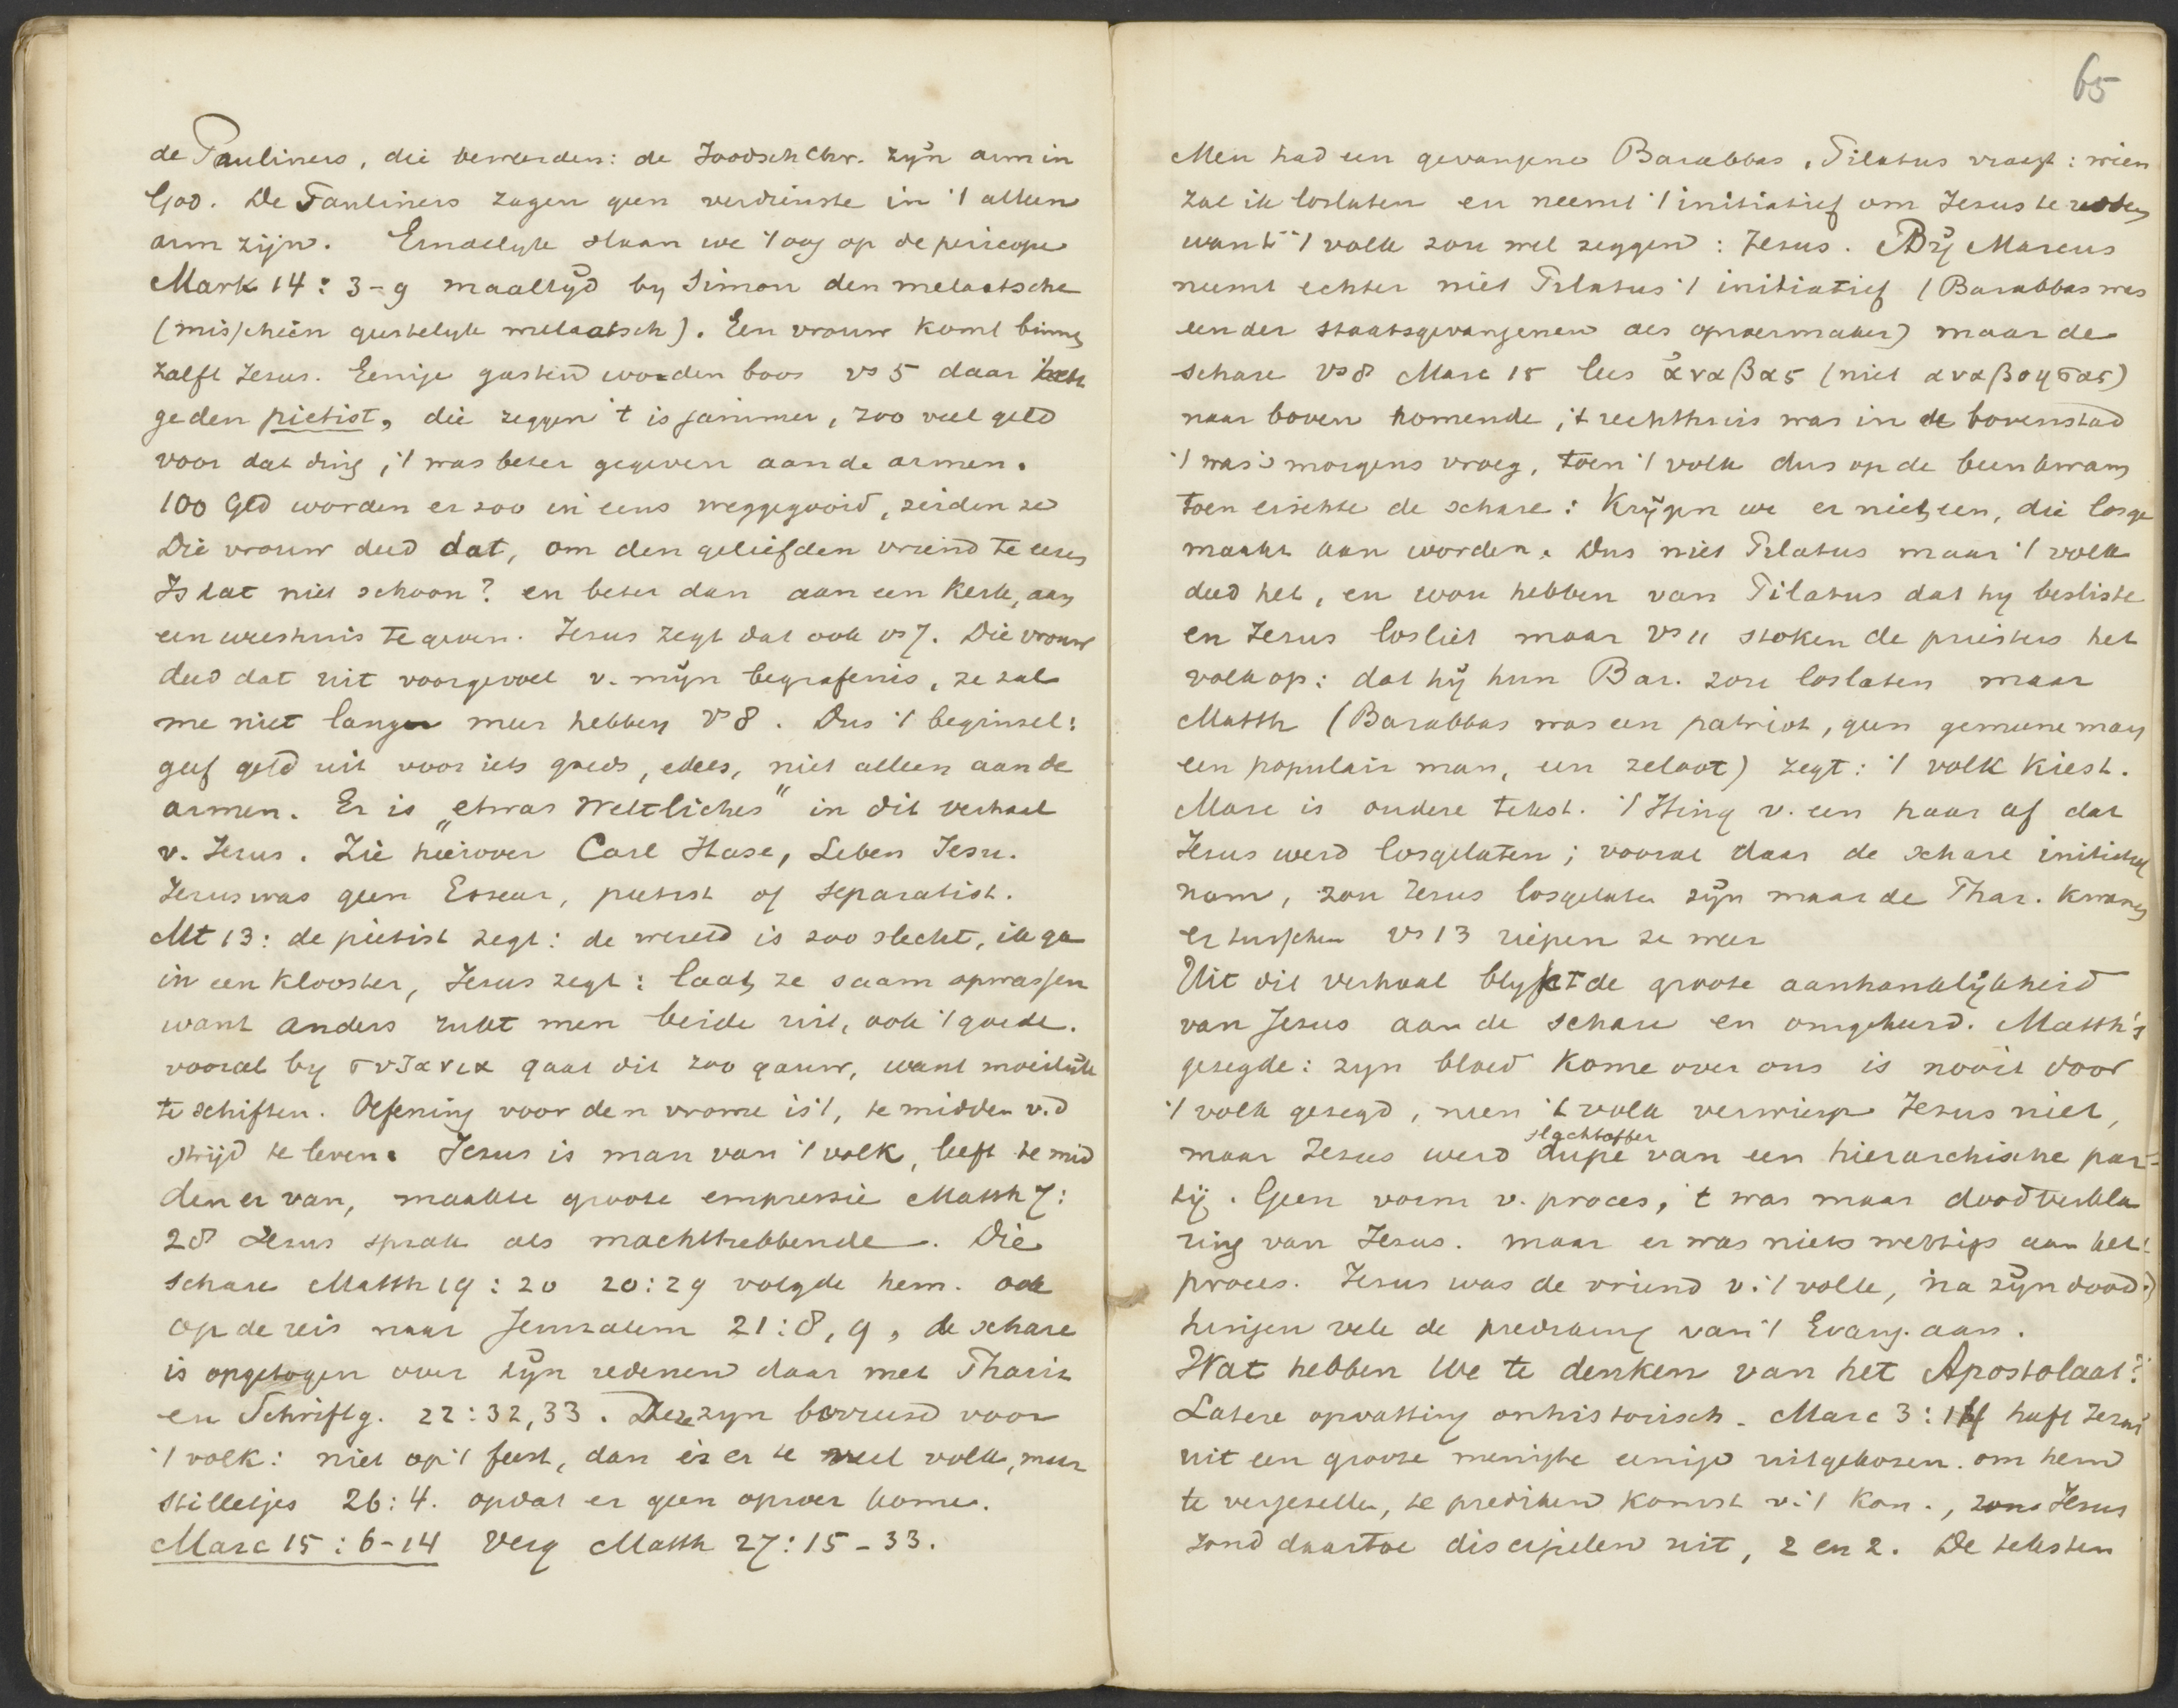 de Pauliners, die beweerden: de Joodsch Chr. zijn arm in
God. De Pauliners zagen geen verdienste in 't alleen
arm zijn. Eindelyk slaan we 't oog op de pericope
Mark 14: 3-9 maaltijd by Simon den melaatsche
(misschien geestelyk melaatsch). Een vrouw komt binnen
zalft Jezus. Eenige gasten worden boos vs 5 daar
ge den pietist, die zeggen 't is jammer, zoo veel geld
voor dat ding, 't was beter gegeven aan de armen.
100 Gld worden er zoo in eens weggegooid, zeiden ze
Die vrouw deed dat, om den geliefden vriend te eeren
Is dat niet schoon? en beter dan aan een kerk, aan
een weeshuis te geven. Jezus zegt dat ook vs 7. Die vrouw
deed dat uit voorgevoel v. mijn begrafenis, ze zal
me niet langer meer hebben vs 8. Dus 't beginsel:
geef geld uit voor iets goeds, edels, niet alleen aan de
armen. Er is „etwas Weltliches" in dit verhaal
v. Jezus. Zie hierover Carl Hase, Leben Jesu.
Jezus was geen Esseer, pietist of separatist.
Mt 13: de pietist zegt: de wereld is zoo slecht, ik ga
in een klooster, Jezus zegt: laat ze saam opwassen
want anders rukt men beide uit, ook 't goede.
vooral by ζιζανια gaat dit zoo gauw, want moeilijk
te schiften. Oefening voor den vrome is 't, te midden v.d
strijd te leven. Jezus is man van 't volk, leeft te mid
den er van, maakte groote empressie Matth 7:
28 Jezus sprak als machthebbende. Die
schare Matth 19:20 20:29 volgde hem. ook
op de reis naar Jeruzalem 21:8,9, de schare
is opgetogen over zijn redenen daar met Phariz
en Schriftg. 22:32,33. Deze zyn bevreesd voor
't volk: niet op 't feest, dan is er te veel volk, maar
stilletjes 26:4. opdat er geen oproer kome.
Marc 15:6-14 Verg Matth 27:15-33.
65
Men had een gevangene Barabbas, Pilatus vraagt: wien
zal ik loslaten en neemt 't initiatief om Jezus te redden
want 't volk zou wel zeggen: Jezus. Bij Marcus
neemt echter niet Pilatus 't initiatief (Barabbas was
een der staatsgevangenen als oproermaker) maar de
schare vs 8 Marc 15 lees ἀναβας (niet αναβοησας)
naar boven komende, 't rechthuis was in de bovenstad
't was 's morgens vroeg, toen 't volk dus op de been kwam
toen eischte de schare: Krijgen we er niet een, die losge
maakt kan worden. Dus niet Pilatus maar 't volk
deed het, en wou hebben van Pilatus dat hy besliste
en Jezus losliet maar vs 11 stoken de priesters het
volk op: dat hij hun Bar. zou loslaten maar
Matth (Barabbas was een patriot, geen gemeene man
een populair man, een zeloot) zegt: 't volk kiest.
Marc is oudere tekst. 't Hing v. een haar af dat
Jezus werd losgelaten; vooral daar de schare initiatief
nam, zou Jezus losgelaten zijn maar de Phar. kwamen
er tusschen vs 13 riepen ze weer
Uit dit verhaal blykt de groote aanhankelijkheid
van Jezus aan de schare en omgekeerd. Matth's
gezegde: zyn bloed kome over ons is nooit door
't volk gezegd, neen 't volk verwierp Jezus niet,
slachtoffer
maar Jezus werd dupe van een hierarchische par-
tij. Geen vorm v. proces, 't was maar doodverkla
ring van Jezus. maar er was niets wettigs aan het
proces. Jezus was de vriend v. 't volk, na zijn dood
hingen vele de prediking van 't Evang. aan.
Wat hebben we te denken van het Apostolaat?
Latere opvatting onhistorisch. Marc 3:14 heeft Jezus
uit een groote menigte eenige uitgekozen om hem
te vergezellen, te prediken komst v. 't Kon., Jezus
zond daartoe discipelen uit, 2 en 2. De teksten